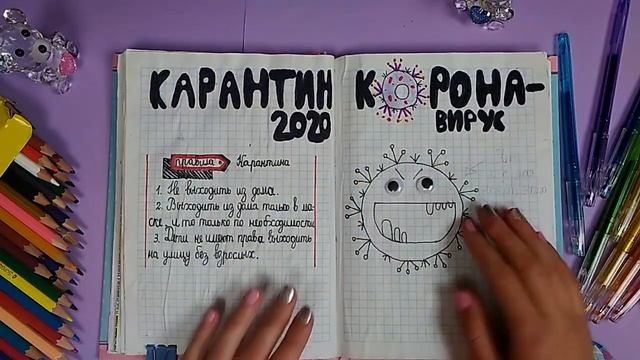 КАРАНТИН
2020
правила Карантина
1. Не выходить из дома.
2. Выходить из дома только в мас-
ске, и то только по необходимости
3. Дети не имеют права выходить
на улицу без взрослых.
КОРОНА-
ВИРУС